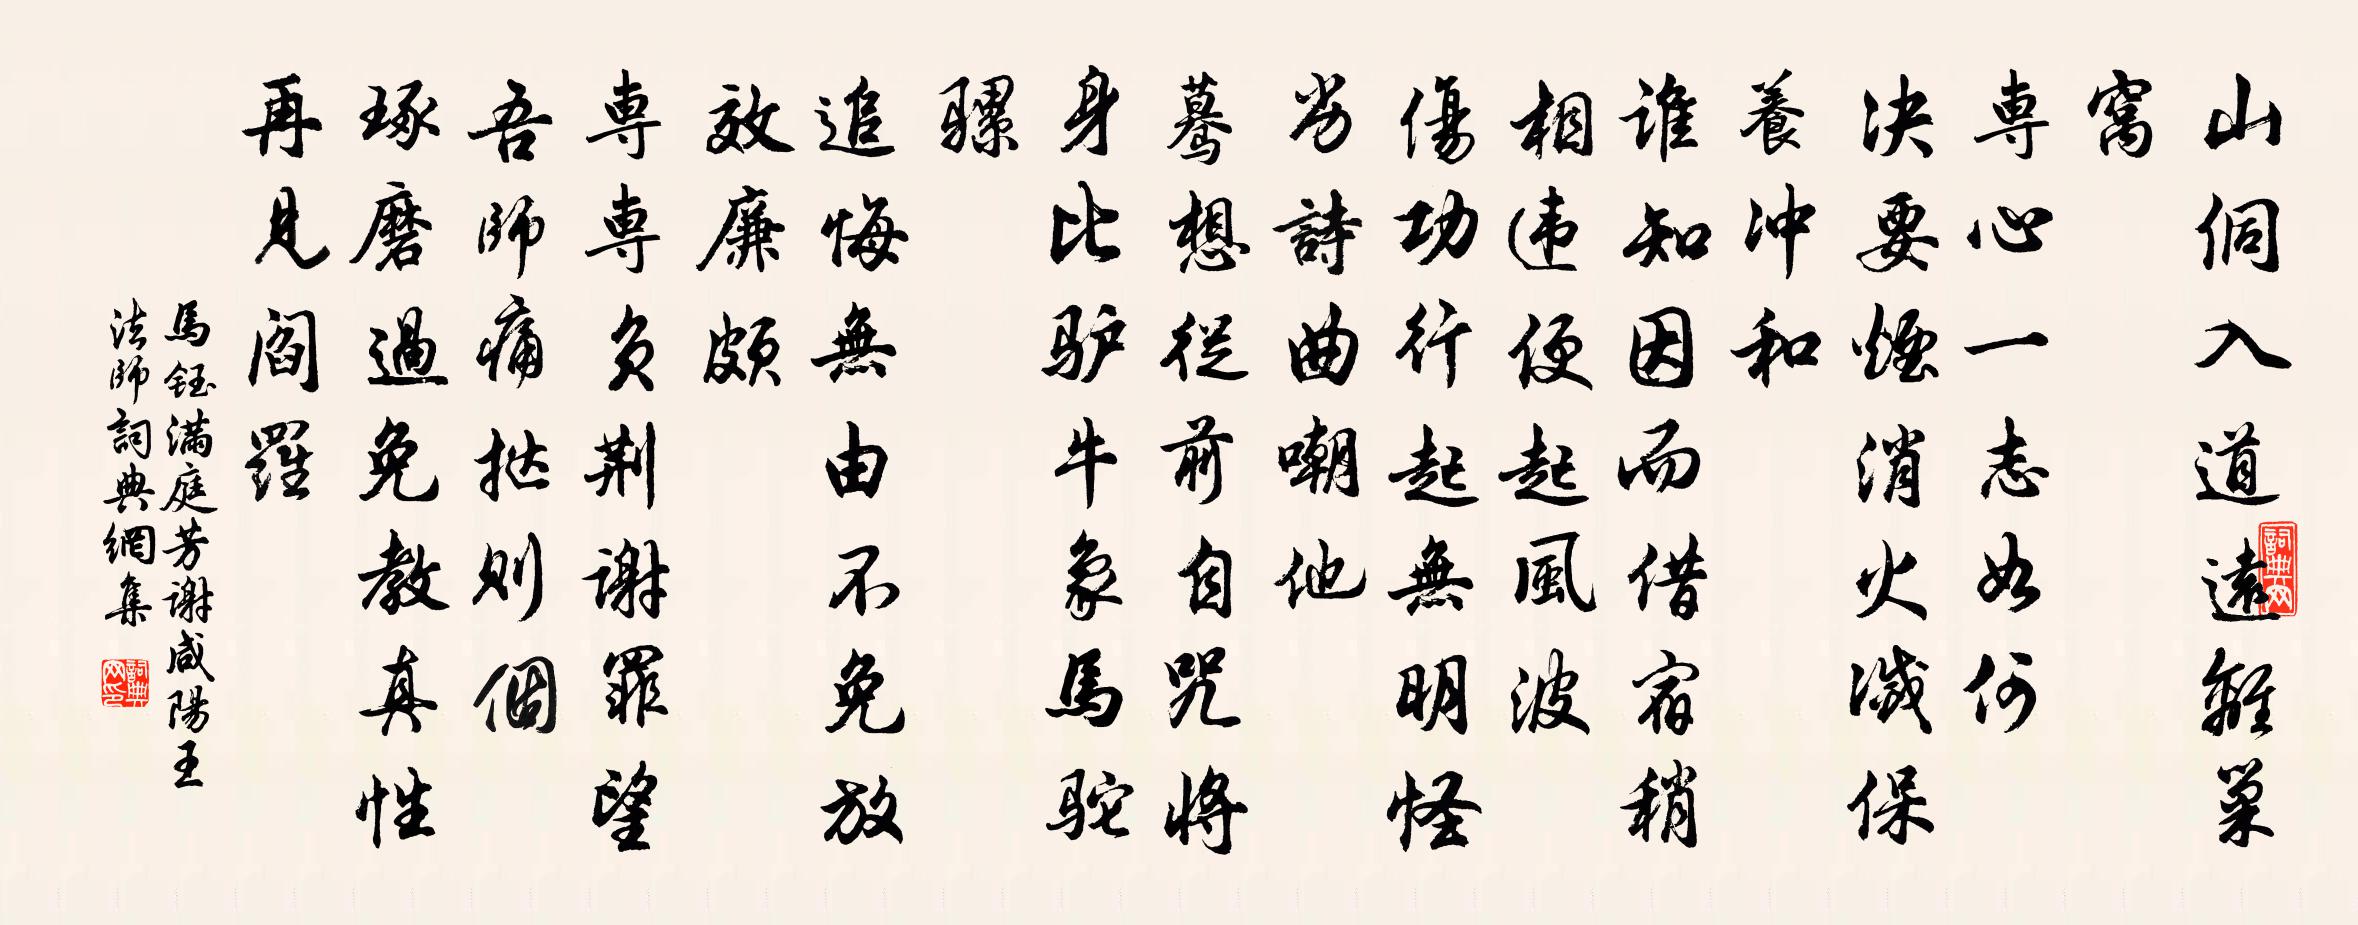 山侗入道遠離巢
窩
専心一志如何
决要煙消火滅保
養冲和
誰知因而借宿稍
相违便起風波
傷功行起無明怪
劣詩曲嘲他
驀想從前自咒將
身比驴牛象馬驼
骡
追悔無由不免放
效廉頗
専専负荆謝罪望
吾師痛挞則個
琢磨過免教真性
再見阎羅
馬鈺满庭芳謝咸陽王
法師詞典網集
詞典网
詞典网印